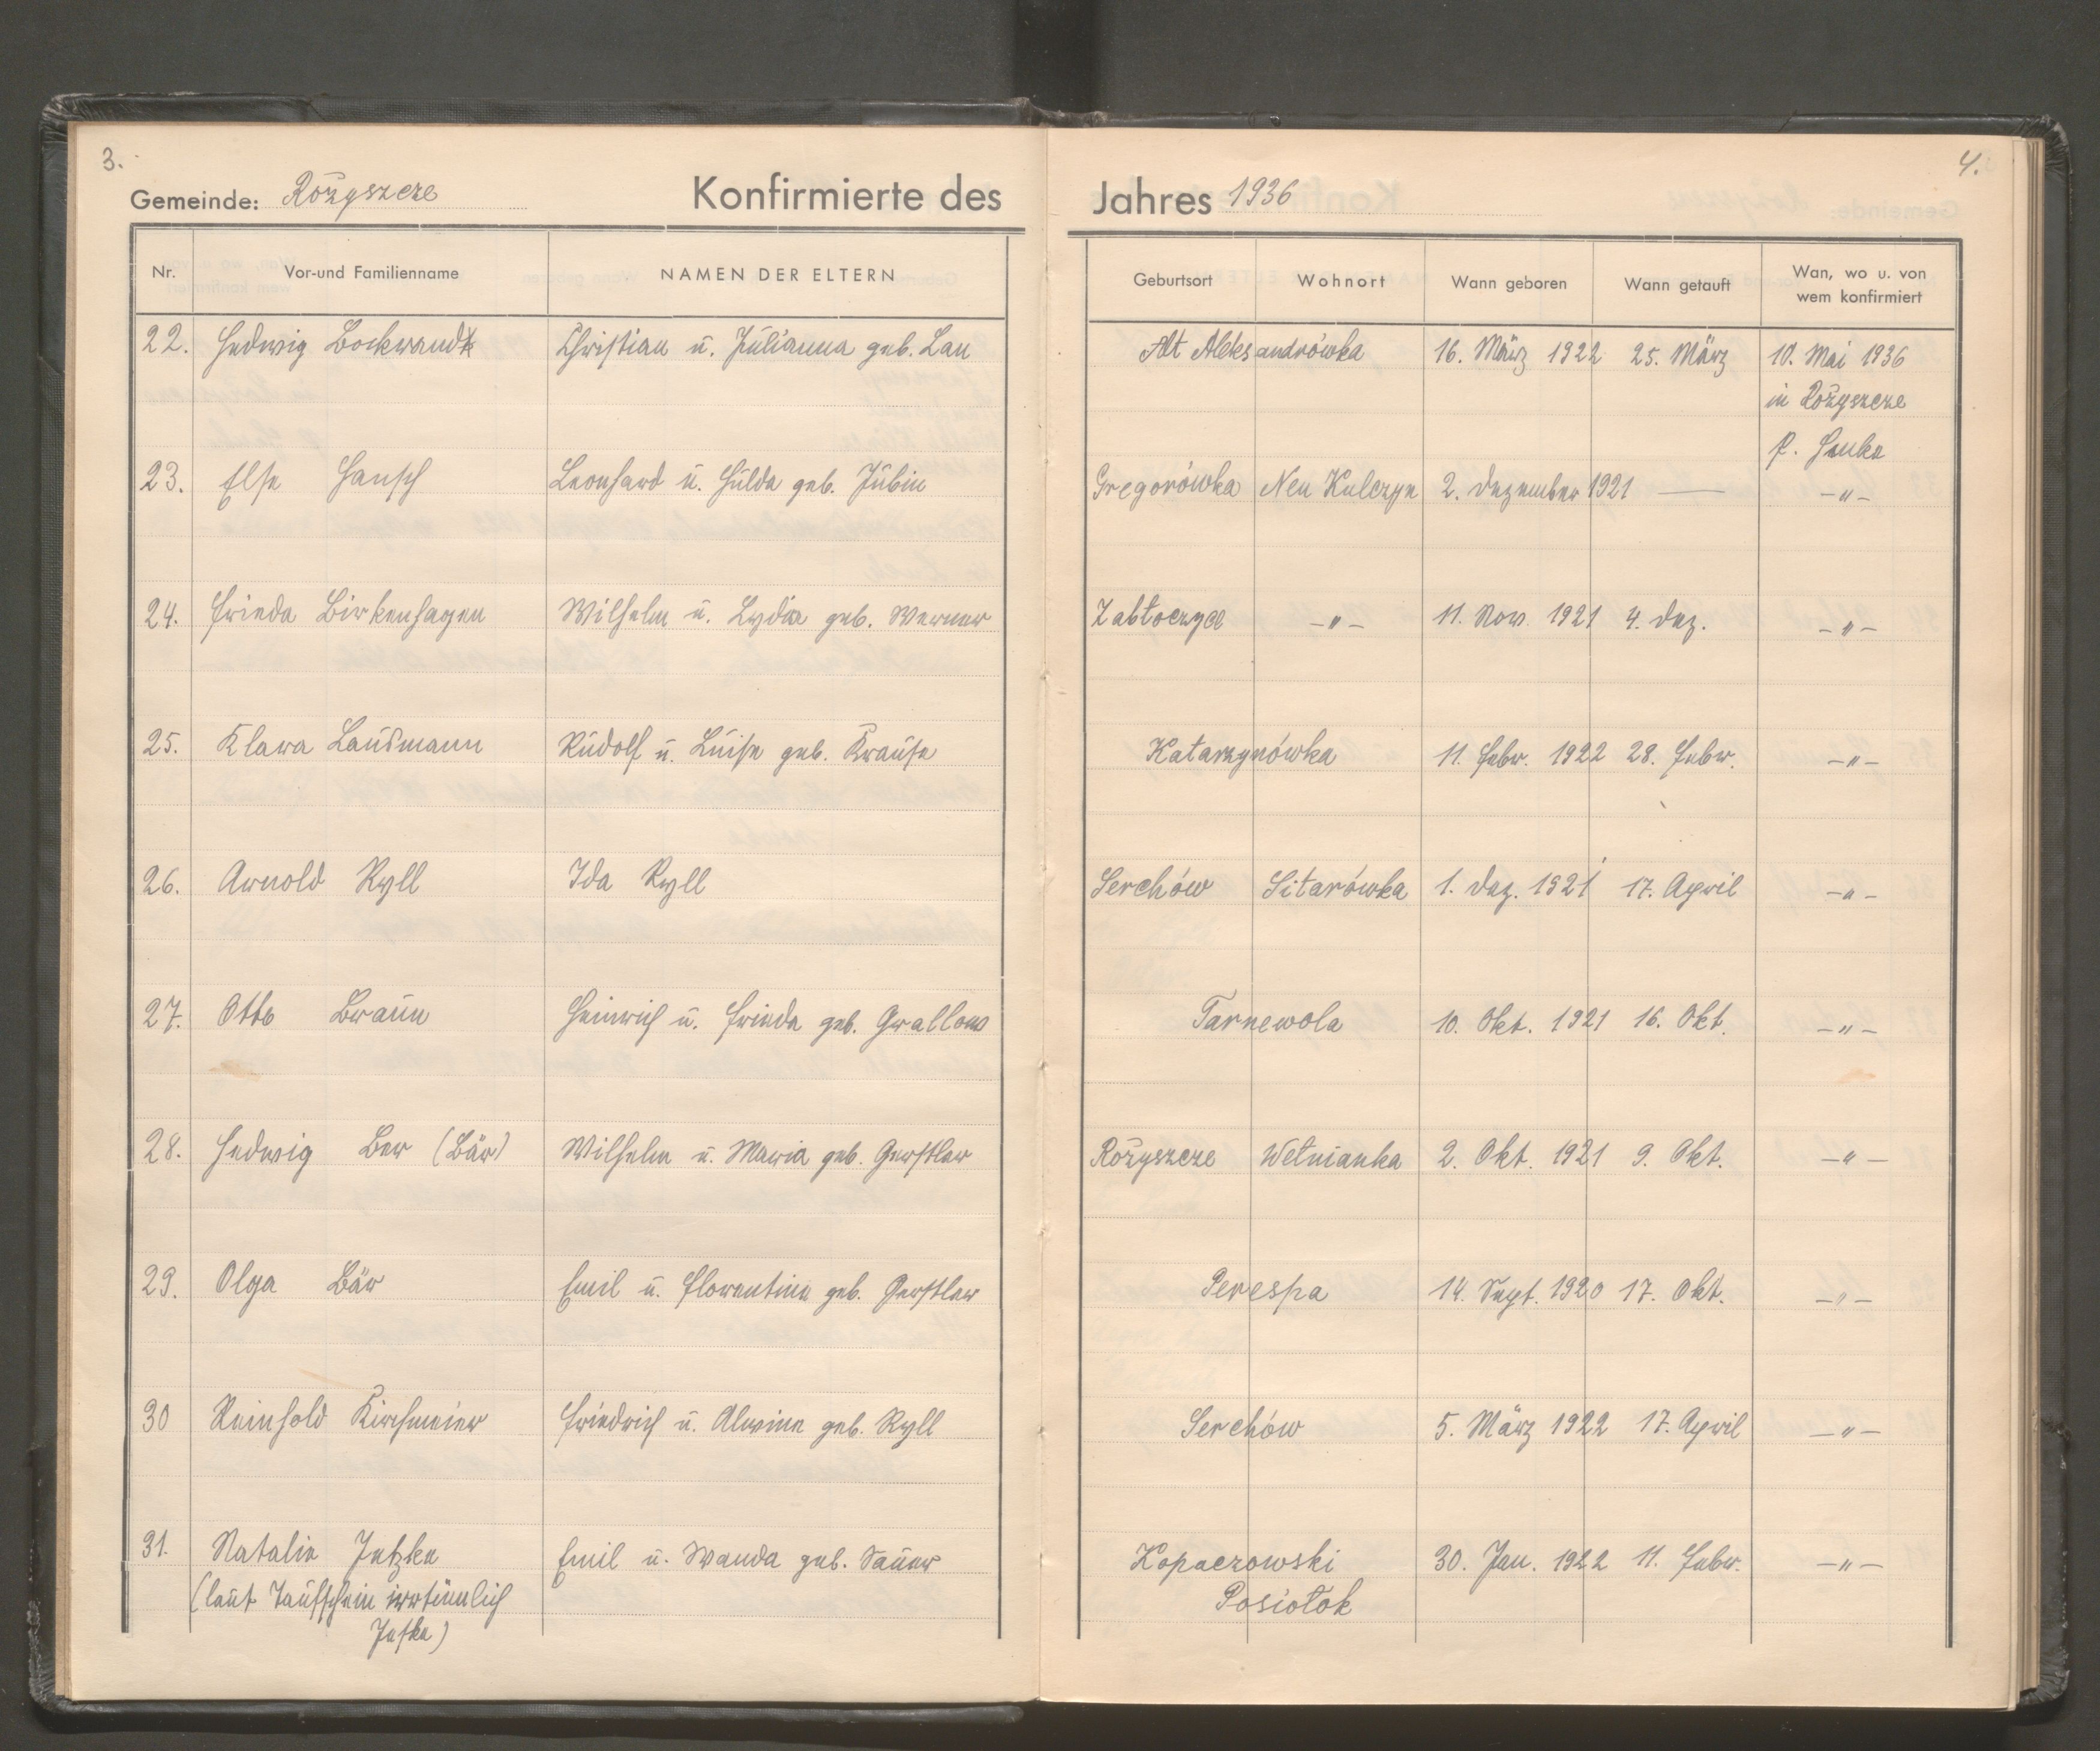 3.
Gemeinde: Rożyszcze
Konfirmierte des
Nr. Vor-und Familienname NAMEN DER ELTERN
22. Hedwig Bockwandt Christian u. Julianna geb. Lau
23. Else Hansch Leonhard u. Hulda geb. Jubin
24. Frieda Birkenhagen Wilhelm u. Lydia geb. Werner
25. Klara Lausmann Rudolf u. Luise geb. Krause
26. Arnold Ryll Ida Ryll
27. Otto Braun Heinrich u. Frieda geb. Grallow
28. Hedwig Ber (Bär) Wilhelm u. Maria geb. Gerstler
29. Olga Bär Emil u. Florentine geb. Gerstler
30 Reinhold Kirchmeier Friedrich u. Alwine geb. Ryll
31. Natalie Jetzke Emil u. Wanda geb. Sauer
(laut Taufschein irrtümlich
Jeske)
4.
Jahres 1936
Geburtsort Wohnort Wann geboren Wann getauft Wan, wo u. von
wem konfirmiert
Alt Aleksandrówka 16. März 1922 25. März 10. Mai 1936
in Rożyszcze
P. Henke
Gregorówka Neu Kulczyn 2. Dezember 1921 — -"-
Zabłoczyce -"- 11. Nov. 1921 4. Dez. -"-
Katarzynówka 11. Febr. 1922 28. Febr. -"-
Serchów Sitarówka 1. Dez. 1921 17. April -"-
Tarnewola 10. Okt. 1921 16. Okt. -"-
Rożyszcze Wełnianka 2. Okt. 1921 9. Okt. -"-
Perespa 14. Sept. 1920 17. Okt. -"-
Serchów 5. März 1922 17. April -"-
Kopaczowski 30. Jan. 1922 11. Febr. -"-
Posiołok